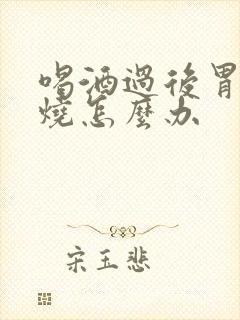 喝酒過後胃
燒怎麼办
宋玉悲